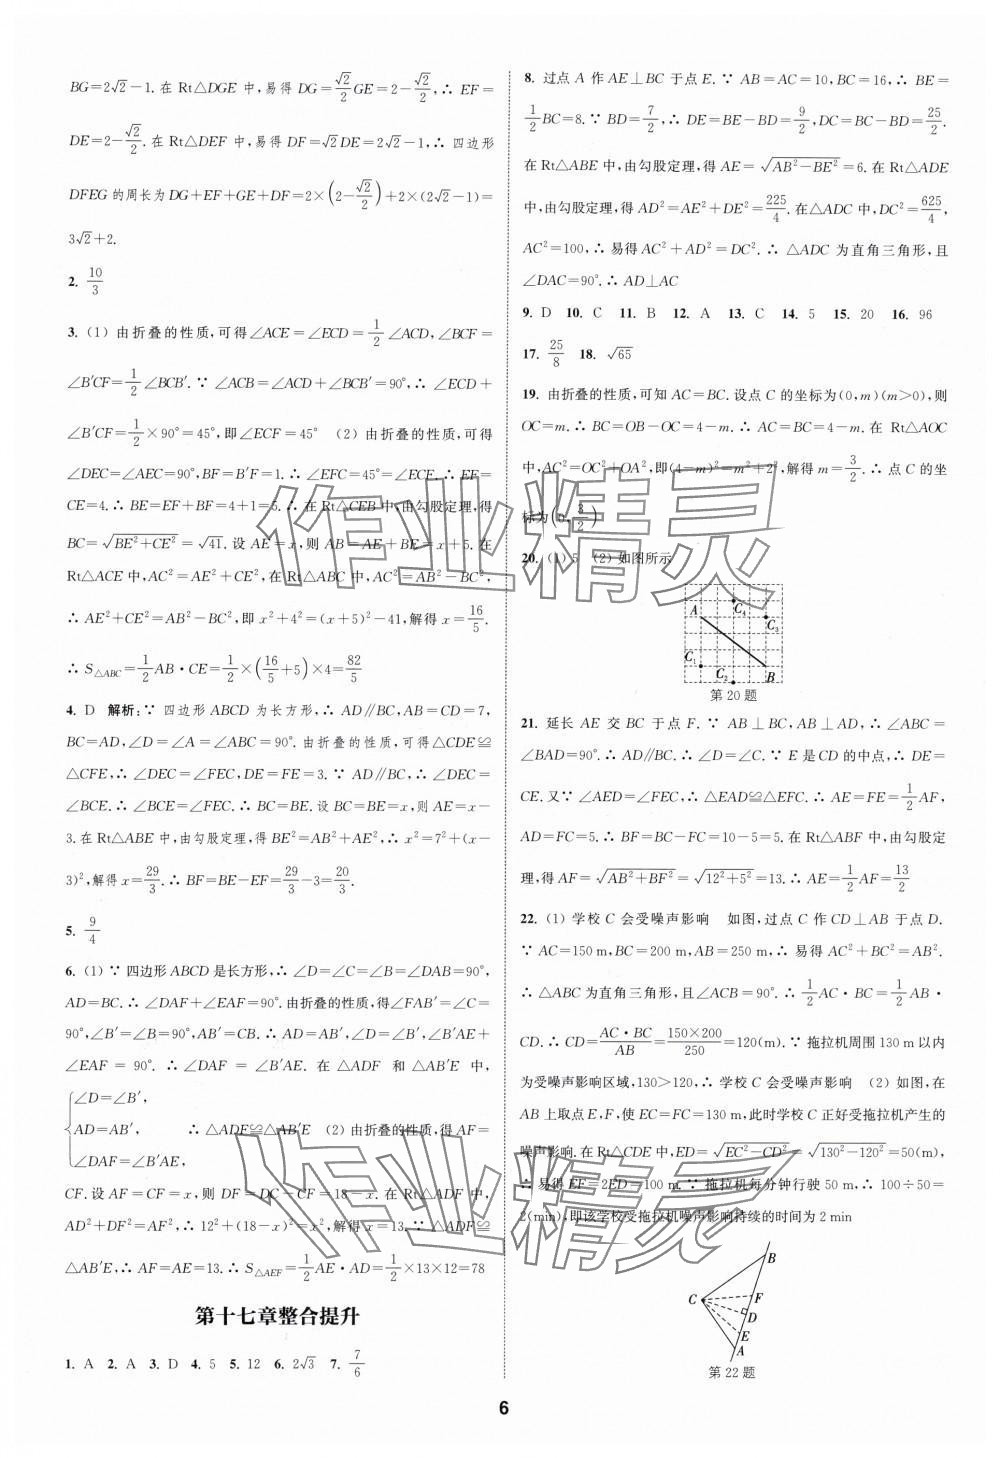 BG=2√2-1.在 Rt△DGE 中,易得 DG=√2/2 GE=2-√2/2,∴ EF=
DE=2-√2/2.在 Rt△DEF 中,易得 DF=√2DE=2√2-1,∴ 四边形
DFEG 的周长为 DG+EF+GE+DF=2×(2-√2/2)+2×(2√2-1)=
3√2+2.
2. 10/3
3. (1) 由折叠的性质,可得∠ACE=∠ECD=1/2∠ACD,∠BCF=
∠B′CF=1/2∠BCB′.∵ ∠ACB=∠ACD+∠BCB′=90°,∴ ∠ECD+
∠B′CF=1/2×90°=45°,即∠ECF=45° (2) 由折叠的性质,可得
∠DEC=∠AEC=90°,BF=B′F=1.∴ ∠EFC=45°=∠ECF.∴ EF=
CE=4.∴ BE=EF+BF=4+1=5.∴ 在 Rt△CEB 中,由勾股定理,得
BC=√(BE²+CE²)=√41.设 AE=x,则 AB=AE+BE=x+5.在
Rt△ACE 中,AC²=AE²+CE²,在 Rt△ABC 中,AC²=AB²-BC²,
∴ AE²+CE²=AB²-BC²,即 x²+4²=(x+5)²-41,解得 x=16/5.
∴ S△ABC=1/2AB·CE=1/2×(16/5+5)×4=82/5
4. D 解析:∵ 四边形 ABCD 为长方形,∴ AD∥BC,AB=CD=7,
BC=AD,∠D=∠A=∠ABC=90°.由折叠的性质,可得△CDE≌
△CFE,∴ ∠DEC=∠FEC,DE=FE=3.∵ AD∥BC,∴ ∠DEC=
∠BCE.∴ ∠BCE=∠FEC.∴ BC=BE.设 BC=BE=x,则 AE=x-
3.在 Rt△ABE 中,由勾股定理,得 BE²=AB²+AE²,∴ x²=7²+(x-
3)²,解得 x=29/3.∴ BF=BE-EF=29/3-3=20/3.
5. 9/4
6. (1) ∵ 四边形 ABCD 是长方形,∴ ∠D=∠C=∠B=∠DAB=90°,
AD=BC.∴ ∠DAF+∠EAF=90°.由折叠的性质,得∠FAB′=∠C=
90°,∠B′=∠B=90°,AB′=CB.∴ AD=AB′,∠D=∠B′,∠B′AE+
∠EAF=90°.∴ ∠DAF=∠B′AE.在△ADF 和△AB′E 中,
{∠D=∠B′,
AD=AB′, ∴ △ADF≌△AB′E (2) 由折叠的性质,得 AF=
∠DAF=∠B′AE,
CF.设 AF=CF=x,则 DF=DC-CF=18-x.在 Rt△ADF 中,
AD²+DF²=AF²,∴ 12²+(18-x)²=x²,解得 x=13.∵ △ADF≌
△AB′E,∴ AF=AE=13.∴ S△AEF=1/2AE·AD=1/2×13×12=78
第十七章整合提升
1. A 2. A 3. D 4. 5 5. 12 6. 2√3 7. 7/6
8. 过点 A 作 AE⊥BC 于点 E.∵ AB=AC=10,BC=16,∴ BE=
1/2BC=8.∵ BD=7/2,∴ DE=BE-BD=9/2,DC=BC-BD=25/2.
在 Rt△ABE 中,由勾股定理,得 AE=√(AB²-BE²)=6.在 Rt△ADE
中,由勾股定理,得 AD²=AE²+DE²=225/4.在△ADC 中,DC²=625/4,
AC²=100,∴ 易得 AC²+AD²=DC².∴ △ADC 为直角三角形,且
∠DAC=90°.∴ AD⊥AC
9. D 10. C 11. B 12. A 13. C 14. 5 15. 20 16. 96
17. 25/8 18. √65
19. 由折叠的性质,可知 AC=BC.设点 C 的坐标为(0,m)(m>0),则
OC=m.∴ BC=OB-OC=4-m.∴ AC=BC=4-m.在 Rt△AOC
中,AC²=OC²+OA²,即(4-m)²=m²+2²,解得 m=3/2.∴ 点 C 的坐
标为(0,3/2)
20. (1) 5 (2) 如图所示
A C₄ C₃
C₁ C₂ B
第 20 题
21. 延长 AE 交 BC 于点 F.∵ AB⊥BC,AB⊥AD,∴ ∠ABC=
∠BAD=90°.∴ AD∥BC.∴ ∠D=∠C.∵ E 是 CD 的中点,∴ DE=
CE.又∵ ∠AED=∠FEC,∴ △EAD≌△EFC.∴ AE=FE=1/2AF,
AD=FC=5.∴ BF=BC-FC=10-5=5.在 Rt△ABF 中,由勾股定
理,得 AF=√(AB²+BF²)=√(12²+5²)=13.∴ AE=1/2AF=13/2
22. (1) 学校 C 会受噪声影响 如图,过点 C 作 CD⊥AB 于点 D.
∵ AC=150 m,BC=200 m,AB=250 m,∴ 易得 AC²+BC²=AB².
∴ △ABC 为直角三角形,且∠ACB=90°.∴ 1/2AC·BC=1/2AB·
CD.∴ CD=AC·BC/AB=150×200/250=120(m).∵ 拖拉机周围 130 m 以内
为受噪声影响区域,130>120,∴ 学校 C 会受噪声影响 (2) 如图,在
AB 上取点 E,F,使 EC=FC=130 m,此时学校 C 正好受拖拉机产生的
噪声影响.在 Rt△CDE 中,ED=√(EC²-CD²)=√(130²-120²)=50(m),
∴ 易得 EF=2ED=100 m.∵ 拖拉机每分钟行驶 50 m,∴ 100÷50=
2(min),即该学校受拖拉机噪声影响持续的时间为 2 min
B
C F
D
E
A
第 22 题
6
作业精灵
作业精灵